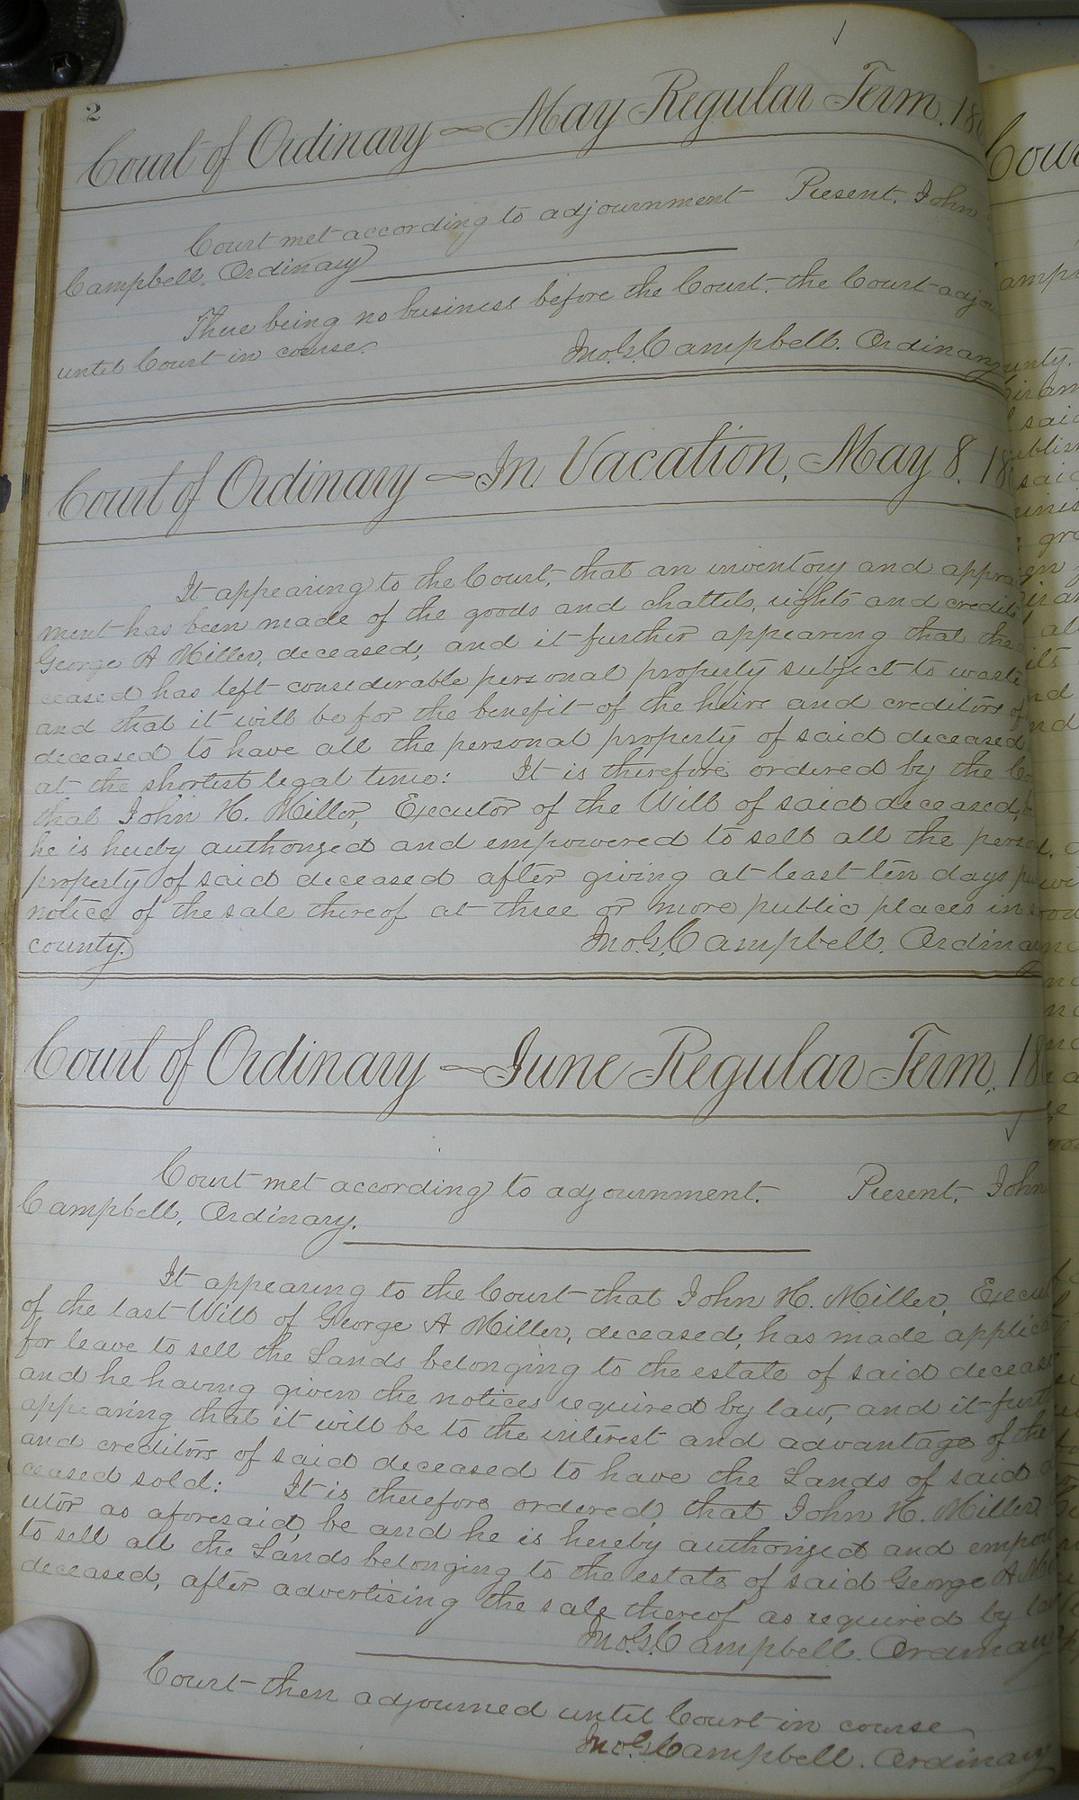 2
Court of Ordinary — May Regular Term, 18
Court met according to adjournment Present, John
Campbell, Ordinary
There being no business before the Court, the Court adjo
until Court in course.
Jno. G. Campbell, Ordinary
Court of Ordinary — In Vacation, May 8, 18
It appearing to the Court, that an inventory and apprai
ment has been made of the goods and chattels, rights and credits
George A Miller, deceased, and it further appearing that the
ceased has left considerable personal property subject to waste
and that it will be for the benefit of the heirs and creditors of
deceased to have all the personal property of said deceased
at the shortest legal time: It is therefore ordered by the Co
that John H. Miller, Executor of the Will of said deceased,
he is hereby authorized and empowered to sell all the perso
property of said deceased after giving at least ten days pu
notice of the sale thereof at three or more public places in s
county.
Jno. G. Campbell, Ordinar
Court of Ordinary — June Regular Term, 18
Court met according to adjournment. Present, John
Campbell, Ordinary.
It appearing to the Court that John H. Miller, Execu
of the last Will of George A Miller, deceased, has made applica
for leave to sell the Lands belonging to the estate of said deceas
and he having given the notices required by law, and it furth
appearing that it will be to the interest and advantage of the
and creditors of said deceased to have the Lands of said d
ceased sold: It is therefore ordered, that John H. Miller
utor as aforesaid, be and he is hereby authorized and empow
to sell all the Lands belonging to the estate of said George A Mi
deceased, after advertising the sale thereof as required by law
Jno. G. Campbell, Ordinary
Court then adjourned until Court in course
Jno. G. Campbell, Ordinary